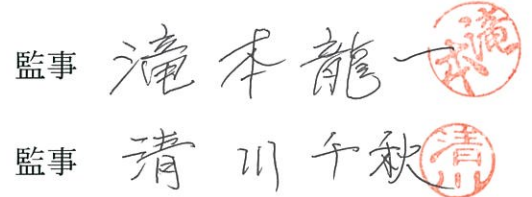 監事 滝本龍一 滝本
監事 清川千秋 清川